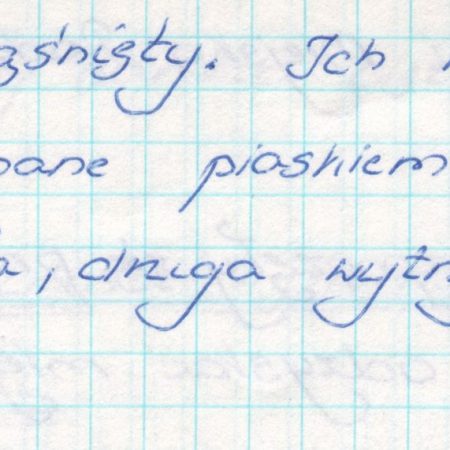 ąśnięty. Ich
pane piaskiem
a, druga wytrz